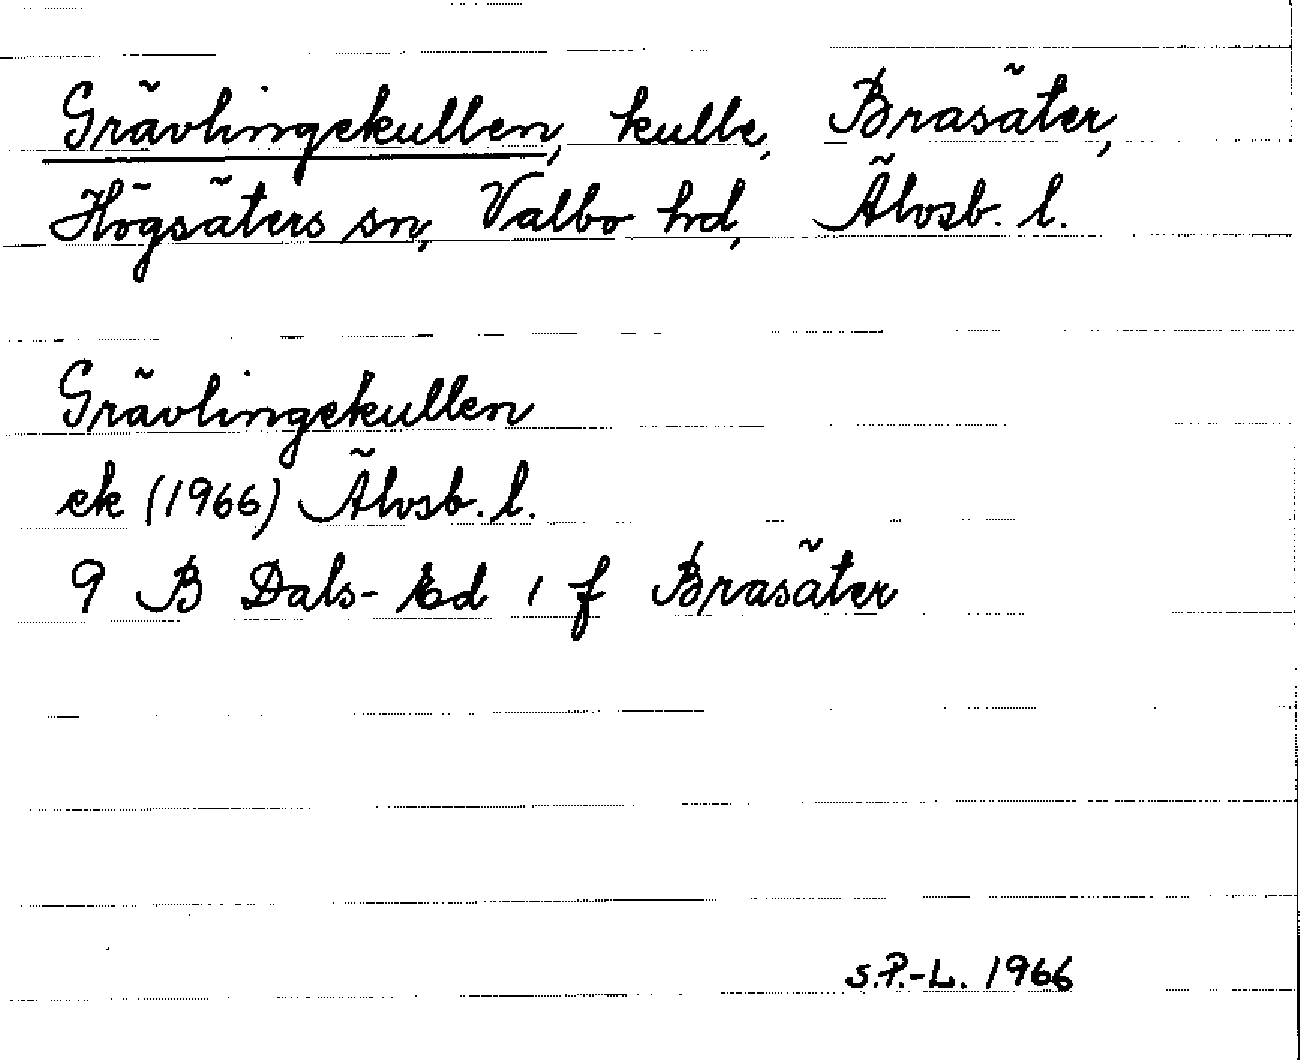 Grävlingekullen, kulle, Brasäter,
Högsäters sn, Valbo hd, Älvsb. l.
Grävlingekullen
ek (1966) Älvsb. l.
9 B Dals-Ed 1 f Brasäter
S.P.-L. 1966